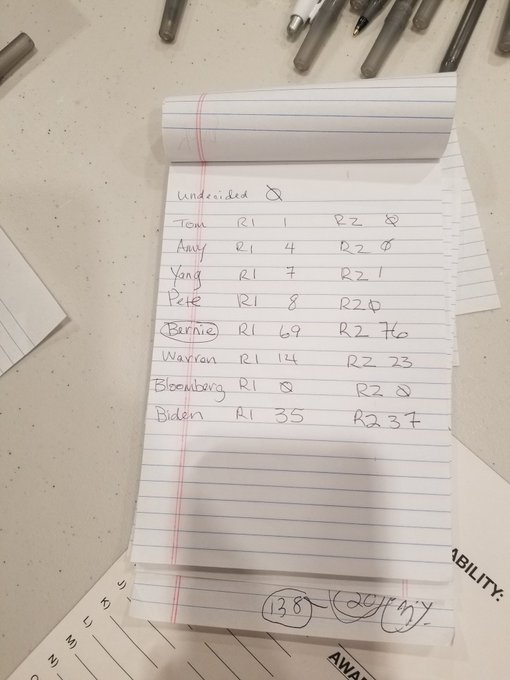 undecided 0
Tom R1 1 R2 0
Amy R1 4 R2 0
Yang R1 7 R2 1
Pete R1 8 R2 0
Bernie R1 69 R2 76
Warren R1 14 R2 23
Bloomberg R1 0 R2 0
Biden R1 35 R2 37
ABILITY:
138 - 20
J)
K)
L)
M)
N)
O
AWA